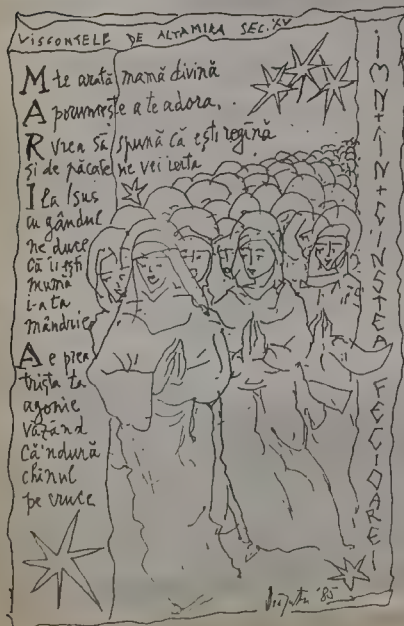 VISCONTELE DE ALTAMIRA SEC. XV
M te arată mamă divină
A poruncește a te adora,
R vrea să spună că ești regină
și de păcate ne vei ierta
I la Isus
cu gândul
ne duce
Că îi ești
mumă
i-a ta
mândrie
A e prea
trista ta
agonie
văzând
Că'ndură
chinul
pe cruce
IMN ÎN CINSTEA FECIOAREI
'85